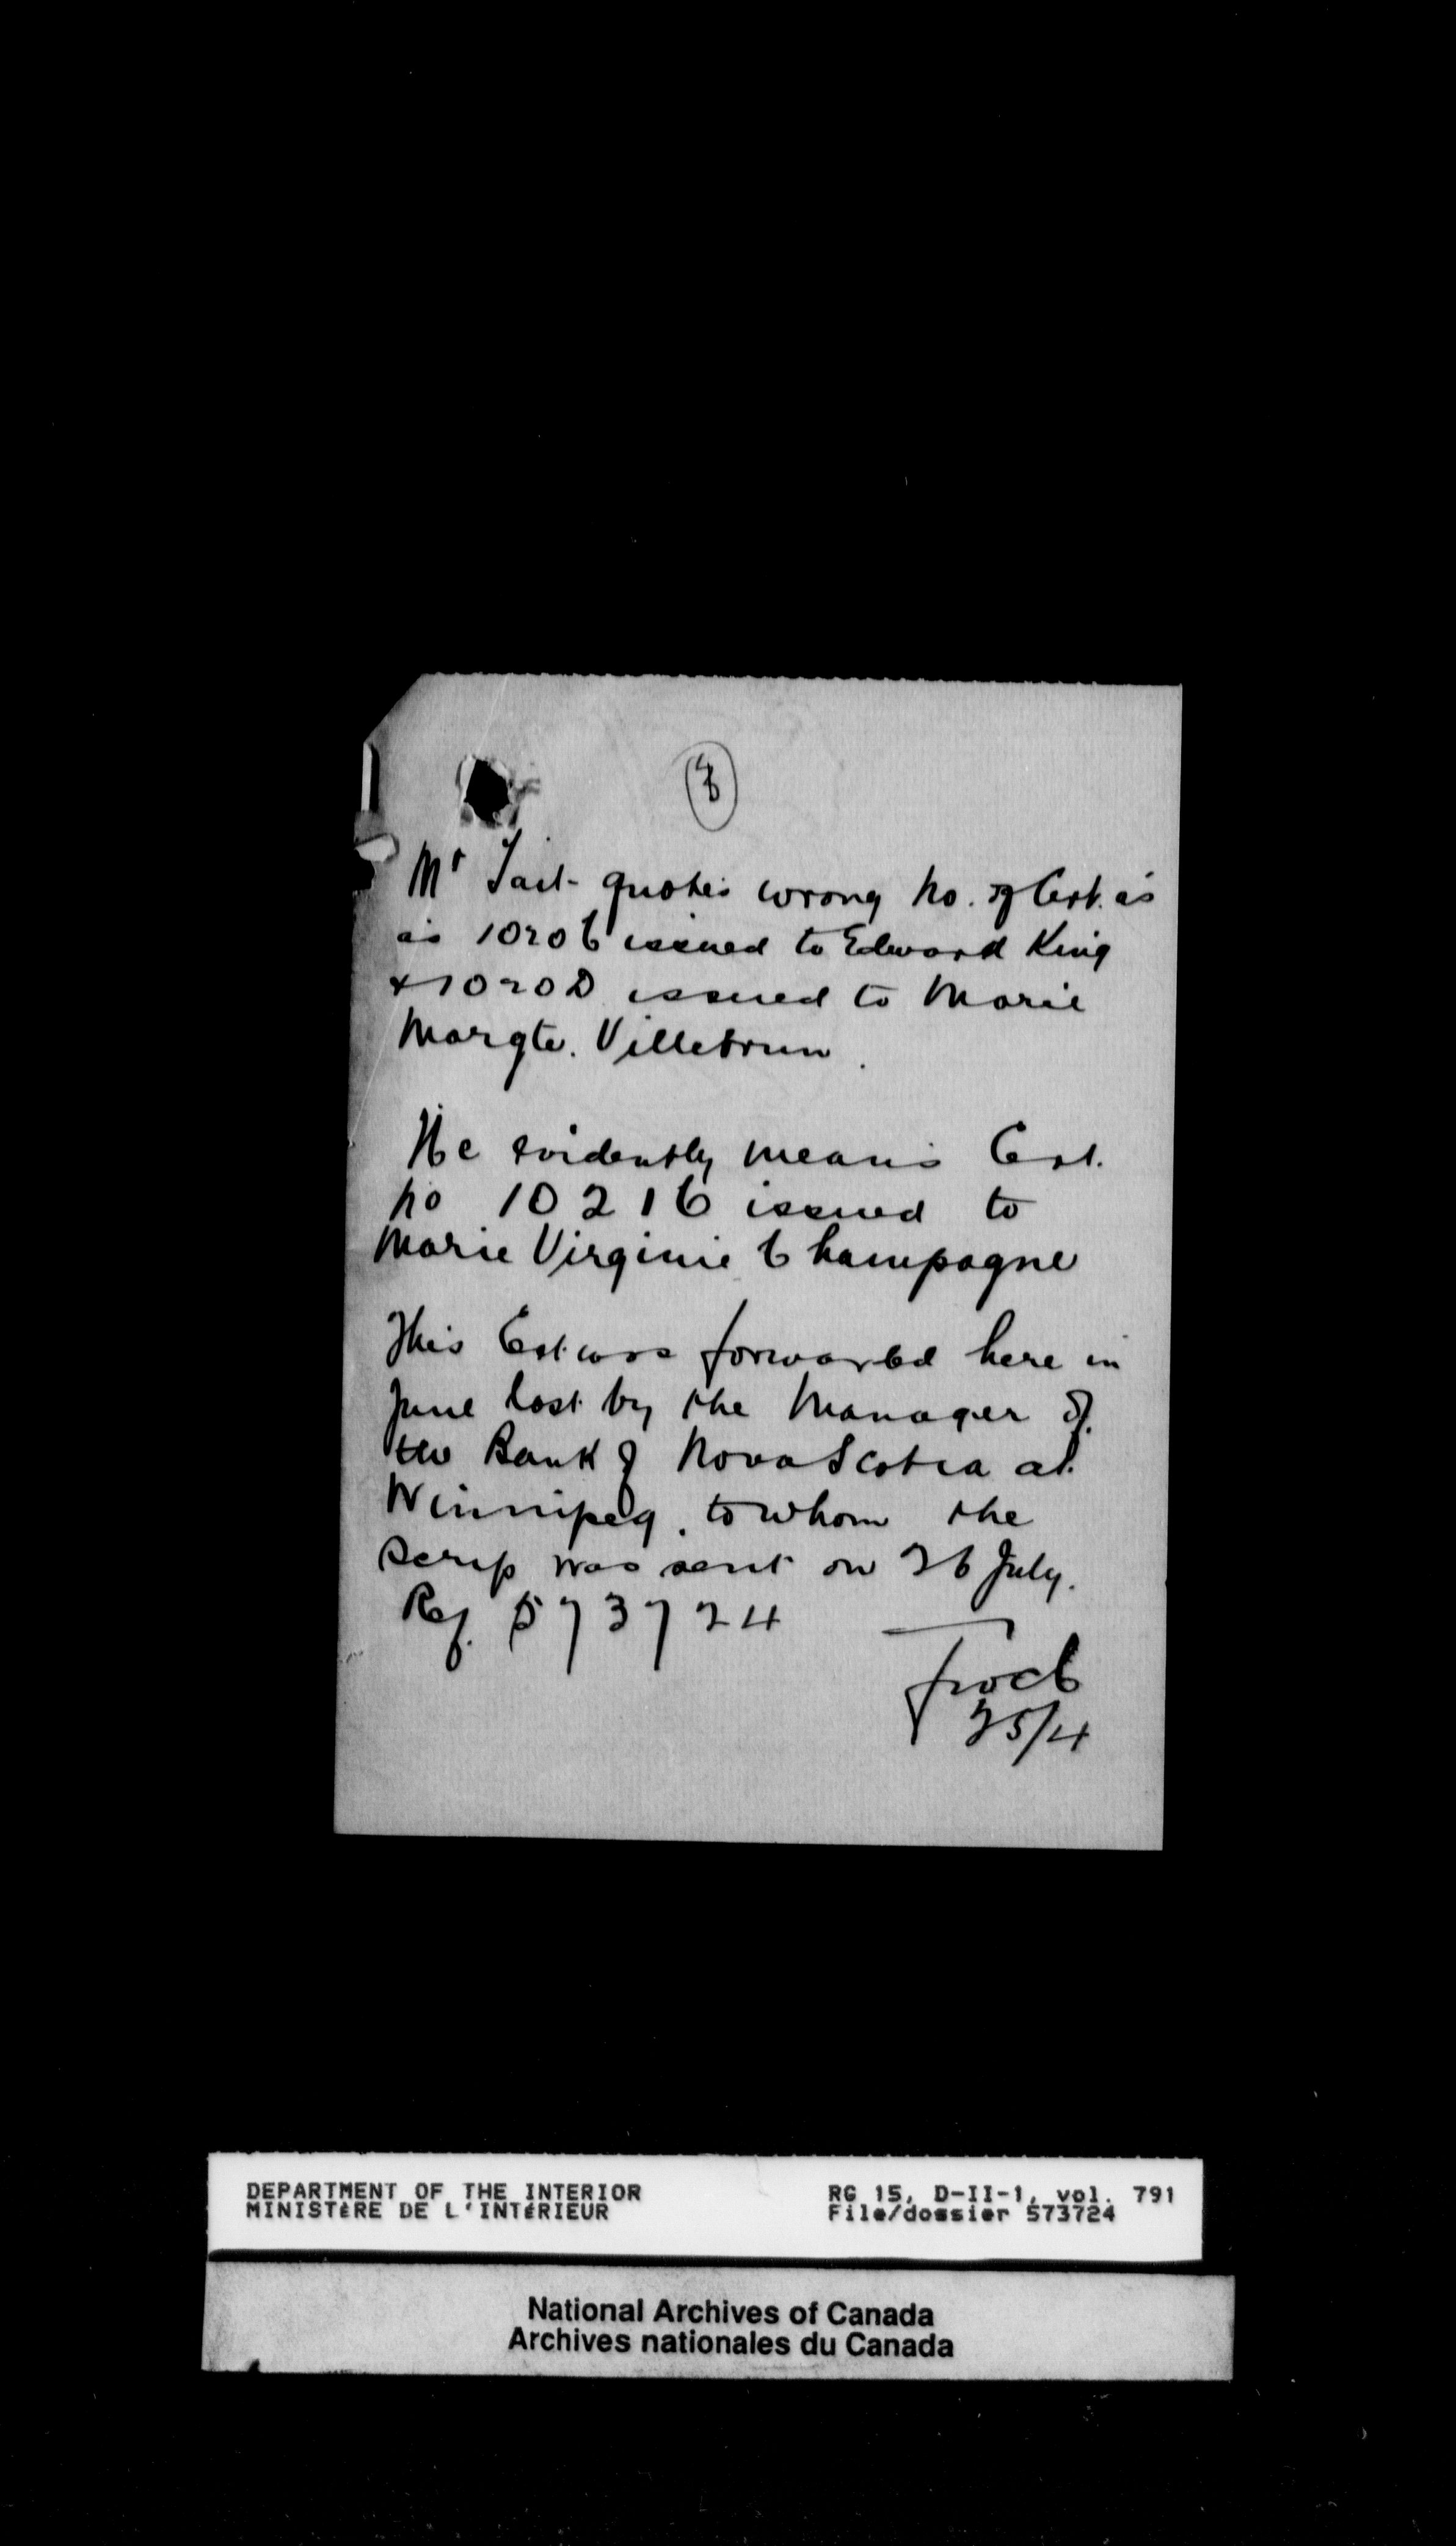 8
Mr Tait quotes wrong No. of Cert. as
as 1020 C issued to Edward King
& 1020 D issued to Marie
Margte. Villebrun.
He evidently means Cert.
No 1021 C issued to
Marie Virginie Champagne
This Cert was forwarded here in
June last by the Manager of
the Bank of Nova Scotia at
Winnipeg, to whom the
scrip was sent on 26 July.
Ref. 573724
25/4
DEPARTMENT OF THE INTERIOR
MINISTÈRE DE L'INTÉRIEUR
RG 15, D-II-1, vol. 791
File/dossier 573724
National Archives of Canada
Archives nationales du Canada